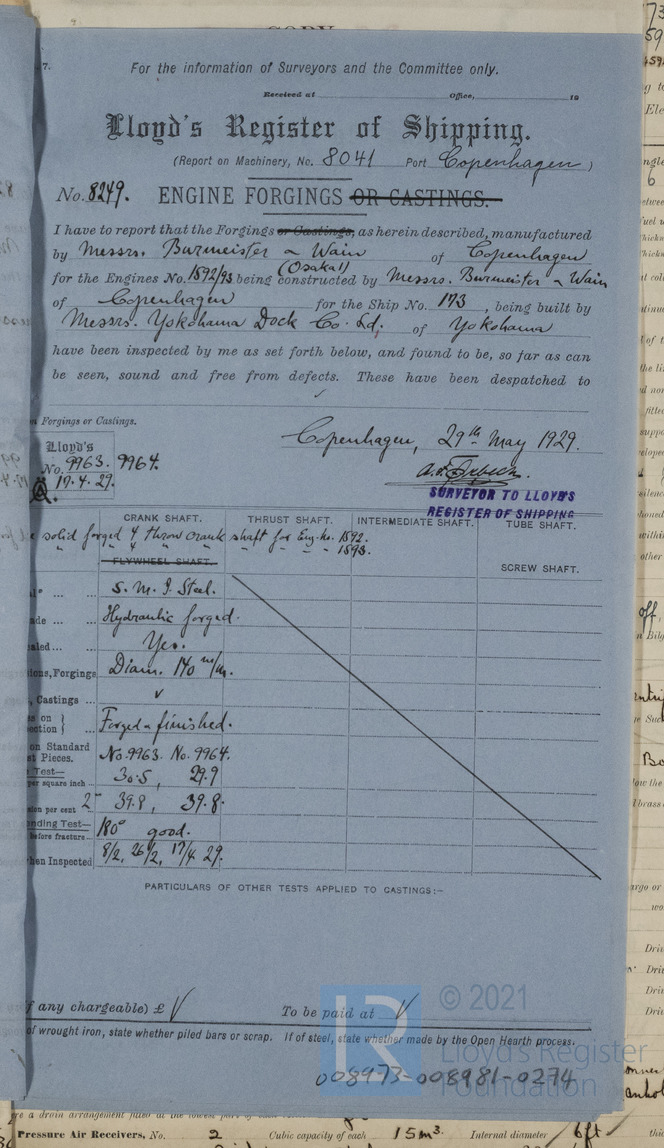 7.
For the information of Surveyors and the Committee only.
Received at Office, 19
Lloyd's Register of Shipping.
(Report on Machinery, No. 8041 Port Copenhagen)
No. 8249. ENGINE FORGINGS OR CASTINGS.
I have to report that the Forgings or Castings, as herein described, manufactured
by Messrs. Burmeister & Wain of Copenhagen
(Osaka 1)
for the Engines No. 1592/93 being constructed by Messrs. Burmeister & Wain
of Copenhagen for the Ship No. 173, being built by
Messrs. Yokohama Dock Co. Ld. of Yokohama
have been inspected by me as set forth below, and found to be, so far as can
be seen, sound and free from defects. These have been despatched to
Forgings or Castings.
Copenhagen, 29th May 1929.
Lloyd's
No. 9963. 9964.
17.4.29.
SURVEYOR TO LLOYD'S
REGISTER OF SHIPPING
CRANK SHAFT. THRUST SHAFT. INTERMEDIATE SHAFT. TUBE SHAFT.
solid forged 4 throw crank shaft for Eng. No. 1592.
" " 4 " " " " " " 1593.
FLYWHEEL SHAFT. SCREW SHAFT.
S. M. I. Steel.
ade Hydraulic forged.
aled Yes.
ions, Forgings Diam. 140 m/m.
, Castings
s on
ction Forged & finished.
on Standard
t Pieces. No. 9963. No. 9964.
Test—
per square inch 30.5, 29.9
ion per cent 2" 39.8, 39.8.
nding Test—
before fracture 180° good.
hen Inspected 8/2, 26/2, 17/4 29.
PARTICULARS OF OTHER TESTS APPLIED TO CASTINGS:—
f any chargeable) £ To be paid at
of wrought iron, state whether piled bars or scrap. If of steel, state whether made by the Open Hearth process.
LR © 2021
Lloyd's Register
Foundation
008973-008981-0274
re a drain arrangement fitted at the lowest part of
Pressure Air Receivers, No. 2 Cubic capacity of each 15 m³. Internal diameter 6ft